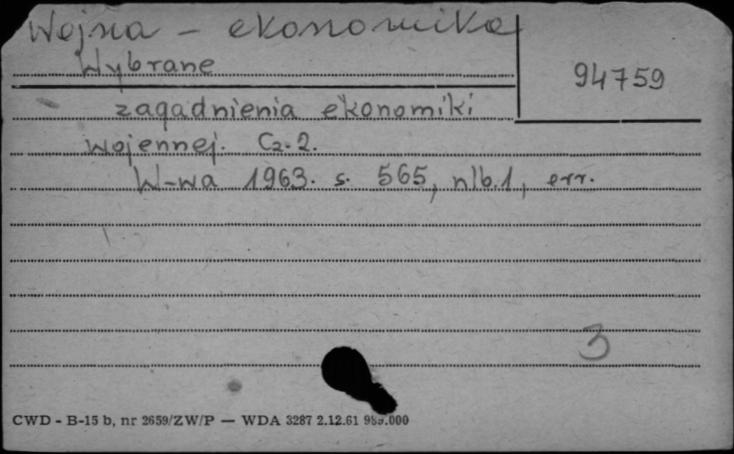 Wojna - ekonomika
Wybrane
94759
zagadnienia ekonomiki
wojennej. Cz. 2.
W-wa 1963. s. 565, nlb. 1, err.
3
CWD - B-15 b, nr 2659/ZW/P — WDA 3287 2.12.61 989.000